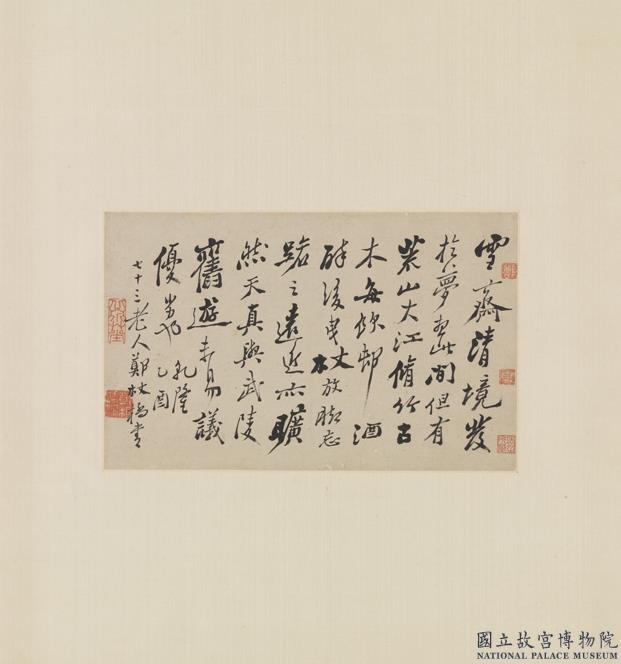 雪齋清境發
於夢此間但有
荒山大江脩竹古
木每飲邨酒
醉後曳杖放腳忘
路之遠近亦曠
然天真與武陵
舊遊未易議
優劣也
乾隆
乙酉
七十三老人鄭板橋書
國立故宮博物院
NATIONAL PALACE MUSEUM